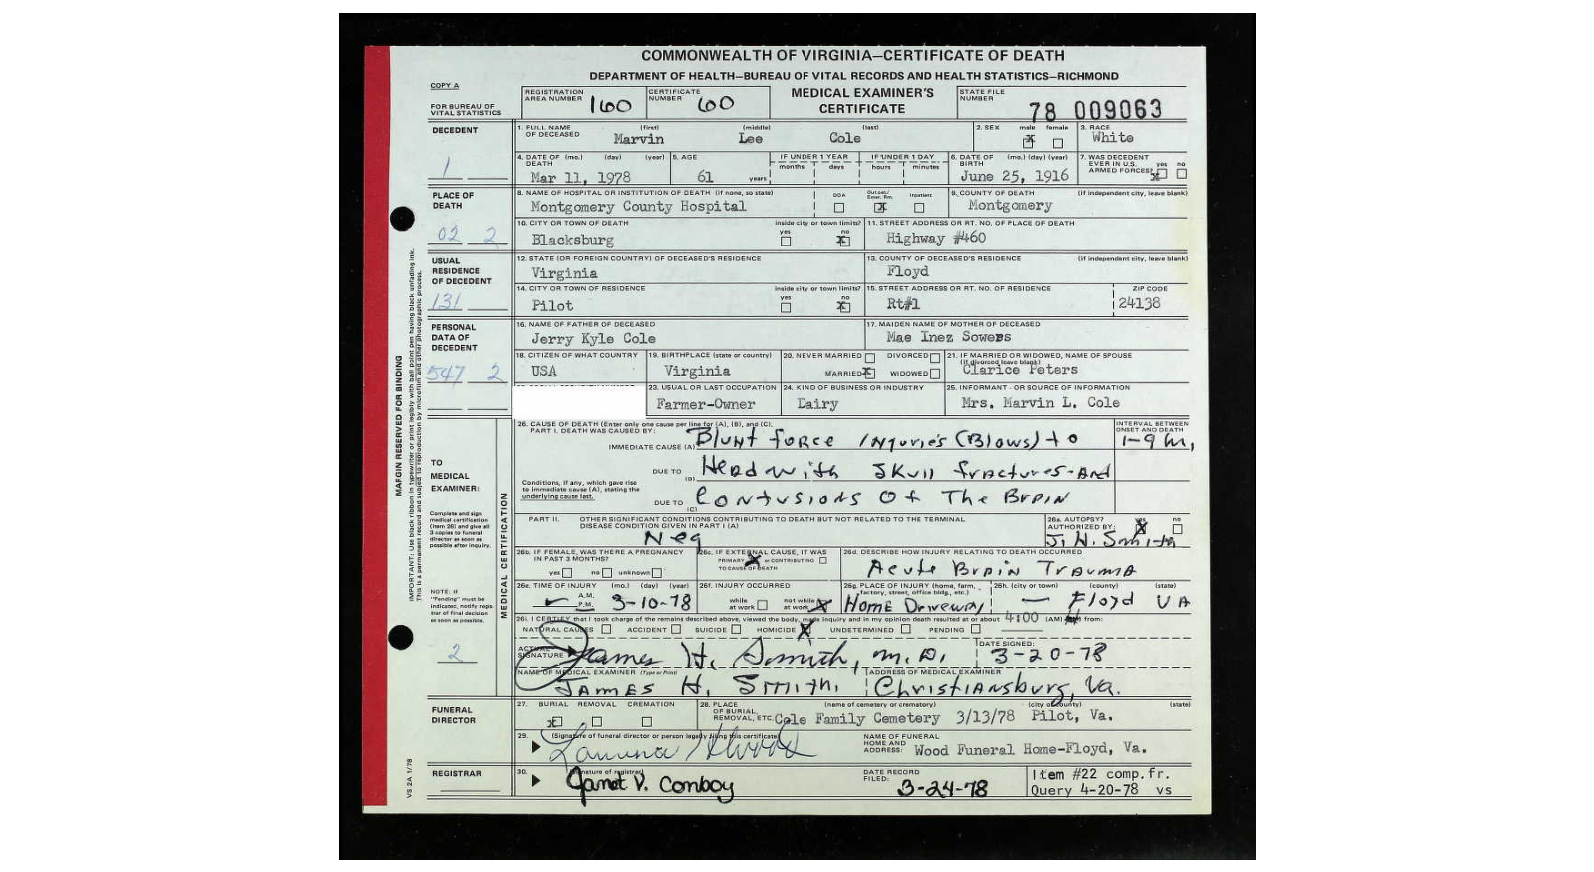 COMMONWEALTH OF VIRGINIA—CERTIFICATE OF DEATH
DEPARTMENT OF HEALTH—BUREAU OF VITAL RECORDS AND HEALTH STATISTICS—RICHMOND
COPY A
FOR BUREAU OF VITAL STATISTICS
REGISTRATION AREA NUMBER 160
CERTIFICATE NUMBER 60
MEDICAL EXAMINER'S CERTIFICATE
STATE FILE NUMBER 78 009063
DECEDENT
1
1. FULL NAME OF DECEASED (first) (middle) (last)
Marvin Lee Cole
2. SEX male female
X
3. RACE
White
4. DATE OF DEATH (mo.) (day) (year)
Mar 11, 1978
5. AGE
61 years
IF UNDER 1 YEAR months days
IF UNDER 1 DAY hours minutes
6. DATE OF BIRTH (mo.) (day) (year)
June 25, 1916
7. WAS DECEDENT EVER IN U.S. ARMED FORCES? yes no
X
PLACE OF DEATH
02 2
8. NAME OF HOSPITAL OR INSTITUTION OF DEATH (If none, so state)
Montgomery County Hospital
DOA Out pat/Emer. Rm. Inpatient
X
9. COUNTY OF DEATH (if independent city, leave blank)
Montgomery
10. CITY OR TOWN OF DEATH inside city or town limits? yes no
Blacksburg X
11. STREET ADDRESS OR RT. NO. OF PLACE OF DEATH
Highway #460
USUAL RESIDENCE OF DECEDENT
131
12. STATE (OR FOREIGN COUNTRY) OF DECEASED'S RESIDENCE
Virginia
13. COUNTY OF DECEASED'S RESIDENCE (if independent city, leave blank)
Floyd
14. CITY OR TOWN OF RESIDENCE inside city or town limits? yes no
Pilot X
15. STREET ADDRESS OR RT. NO. OF RESIDENCE
Rt#1
ZIP CODE
24138
PERSONAL DATA OF DECEDENT
547 2
16. NAME OF FATHER OF DECEASED
Jerry Kyle Cole
17. MAIDEN NAME OF MOTHER OF DECEASED
Mae Inez Sowers
18. CITIZEN OF WHAT COUNTRY
USA
19. BIRTHPLACE (state or country)
Virginia
20. NEVER MARRIED DIVORCED
MARRIED X WIDOWED
21. IF MARRIED OR WIDOWED, NAME OF SPOUSE (if divorced leave blank)
Clarice Peters
23. USUAL OR LAST OCCUPATION
Farmer-Owner
24. KIND OF BUSINESS OR INDUSTRY
Dairy
25. INFORMANT - OR SOURCE OF INFORMATION
Mrs. Marvin L. Cole
MARGIN RESERVED FOR BINDING
IMPORTANT: Use black ribbon in typewriter or print legibly with ball point pen having black unfading ink.
This is a permanent record and subject to reproduction by microfilm and other photographic process.
TO MEDICAL EXAMINER:
Complete and sign medical certification (item 26) and give all 3 copies to funeral director as soon as possible after inquiry.
NOTE: If "Pending" must be indicated, notify registrar of final decision as soon as possible.
2
MEDICAL CERTIFICATION
26. CAUSE OF DEATH (Enter only one cause per line for (A), (B), and (C).
PART I. DEATH WAS CAUSED BY:
INTERVAL BETWEEN ONSET AND DEATH
IMMEDIATE CAUSE (A) Blunt force injuries (Blows) to 1-9 h,
DUE TO (B) Head with skull fractures-and
Conditions, if any, which gave rise to immediate cause (A), stating the underlying cause last.
DUE TO (C) Contusions of the Brain
PART II. OTHER SIGNIFICANT CONDITIONS CONTRIBUTING TO DEATH BUT NOT RELATED TO THE TERMINAL DISEASE CONDITION GIVEN IN PART I (A)
Neg
26a. AUTOPSY? yes no
X
AUTHORIZED BY:
J. H. Smith
26b. IF FEMALE, WAS THERE A PREGNANCY IN PAST 3 MONTHS?
yes no unknown
26c. IF EXTERNAL CAUSE, IT WAS
PRIMARY X or CONTRIBUTING
TO CAUSE OF DEATH
26d. DESCRIBE HOW INJURY RELATING TO DEATH OCCURRED
Acute Brain Trauma
26e. TIME OF INJURY (mo.) (day) (year)
A.M. P.M. 3-10-78
26f. INJURY OCCURRED
while at work not while at work X
26g. PLACE OF INJURY (home, farm, factory, street, office bldg., etc.)
Home Driveway
26h. (city or town) (county) (state)
— Floyd VA
26i. I CERTIFY that I took charge of the remains described above, viewed the body, made inquiry and in my opinion death resulted at or about 4:00 (AM) from:
NATURAL CAUSES ACCIDENT SUICIDE HOMICIDE X UNDETERMINED PENDING
ACTUAL SIGNATURE James H. Smith, M.D.
DATE SIGNED: 3-20-78
NAME OF MEDICAL EXAMINER (Type or Print)
James H. Smith.
ADDRESS OF MEDICAL EXAMINER
Christiansburg, Va.
FUNERAL DIRECTOR
27. BURIAL REMOVAL CREMATION
X
28. PLACE OF BURIAL, REMOVAL, ETC. (name of cemetery or crematory) (city or county) (state)
Cole Family Cemetery 3/13/78 Pilot, Va.
29. (Signature of funeral director or person legally filing this certificate)
NAME OF FUNERAL HOME AND ADDRESS: Wood Funeral Home-Floyd, Va.
REGISTRAR
30. (Signature of registrar)
Janet V. Comboy
DATE RECORD FILED: 3-24-78
Item #22 comp.fr.
Query 4-20-78 vs
VS 2A 1/78